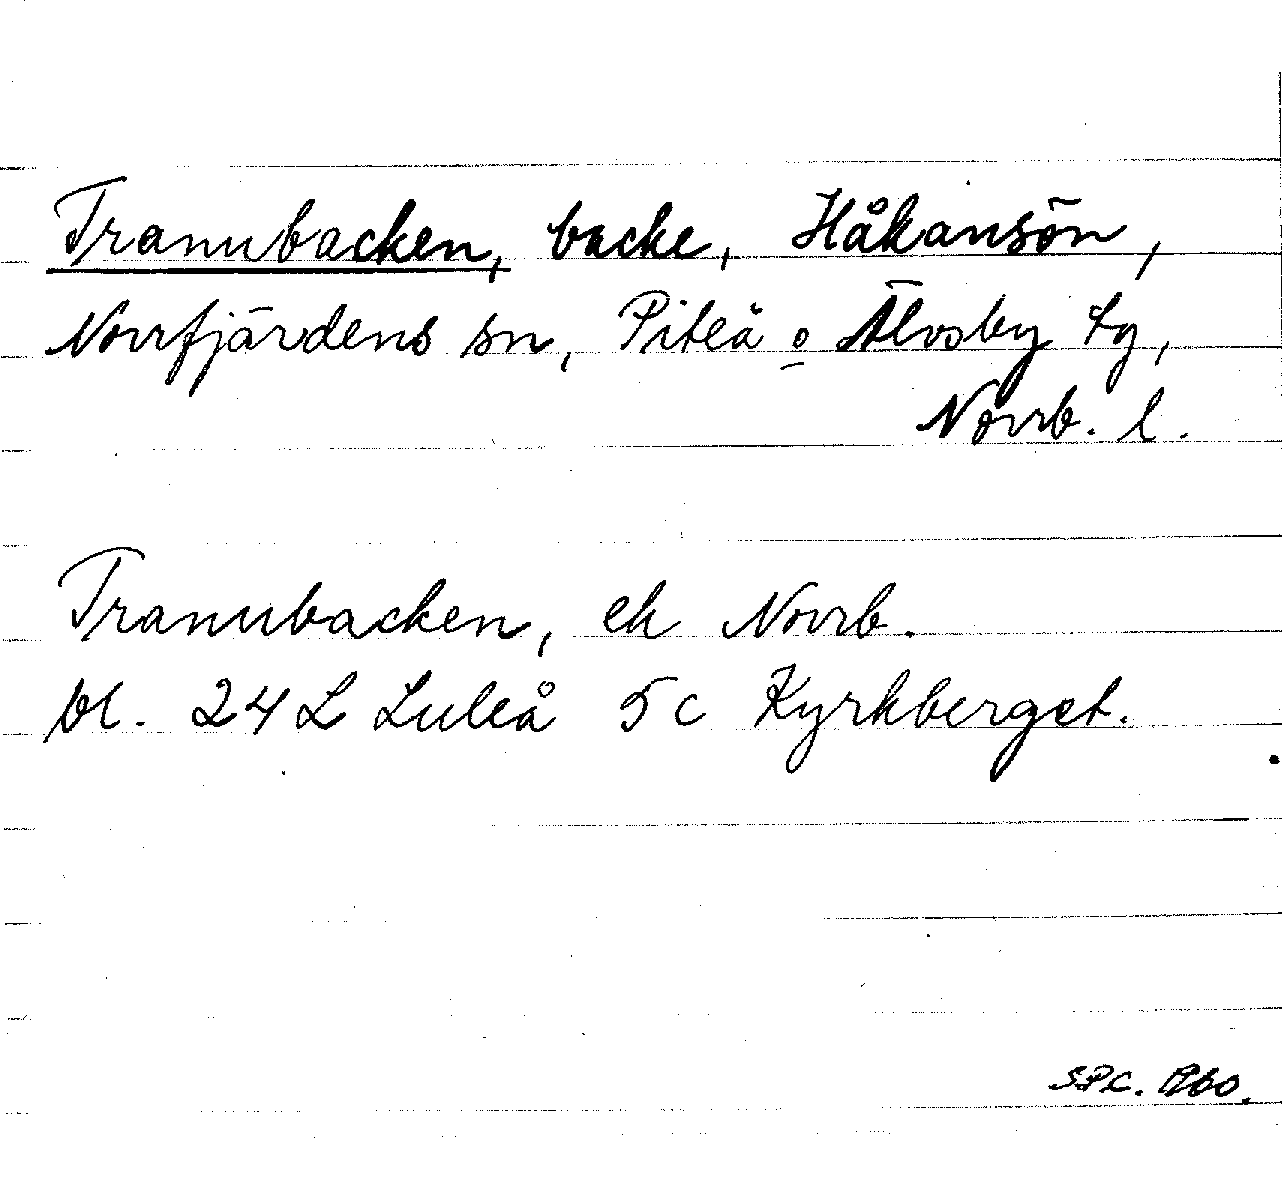 Tranubacken, backe, Håkansön,
Norrfjärdens sn, Piteå o Älvsby tg,
Norrb. l.
Tranubacken, ek Norrb.
bl. 24 L Luleå 5c Kyrkberget.
SPC. 1960.